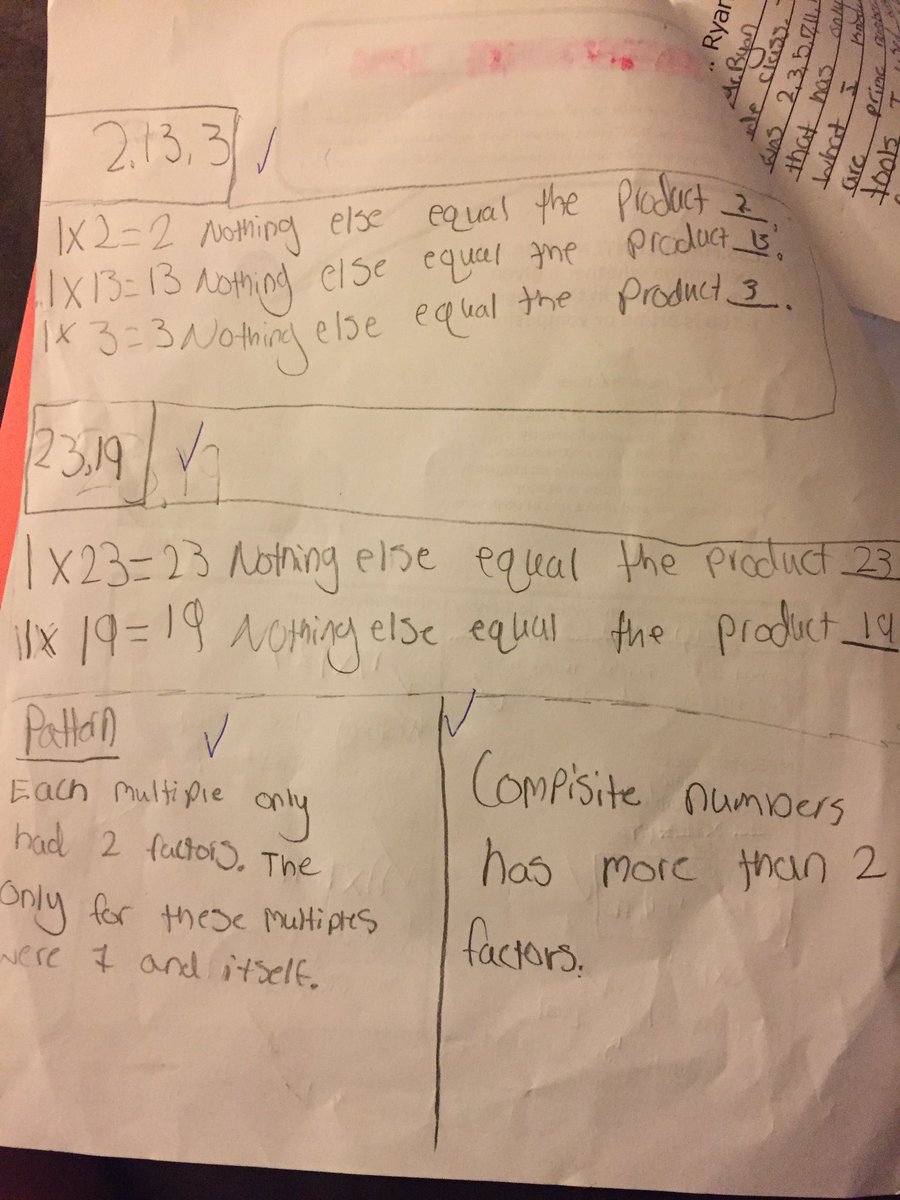 2,13,3
1x2=2 Nothing else equal the product 2.
1x13=13 Nothing else equal the product 13.
1x 3=3 Nothing else equal the product 3.
23,19
1x23=23 Nothing else equal the product 23
1x 19=19 Nothing else equal the product 19
Pattarn
Each multiple only
had 2 factors. The
only for these multiples
were 1 and itself.
Compisite numbers
has more than 2
factors.
Ryan
Mr. Ryan
class.
was 2,3,5,7,11
that has only
what I
are prime
tools I